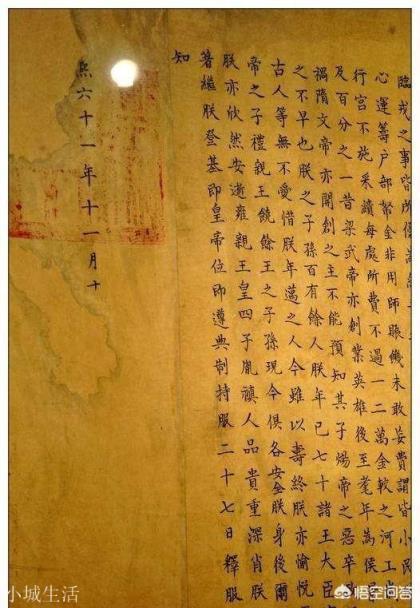 臨戎之事皆所
心運籌戶部帑金非用師賑饑未敢妄費謂皆小民
行宮不施采繢每處所費不過一二萬金較之河工
及百分之一昔梁武帝亦創業英雄後至耄年為侯
禍隋文帝亦開創之主不能預知其子煬帝之惡卒
之不早也朕之子孫百有餘人朕年已七十諸王大臣
古人等無不愛惜朕年邁之人今雖以壽終朕亦愉悅
帝之子禮親王饒餘王之子孫現今俱各安全朕身後爾
朕亦欣然安逝雍親王皇四子胤禛人品貴重深肖朕
著繼朕登基即皇帝位即遵典制持服二十七日釋服
知
熙六十一年十一月十
小城生活
悟空问答